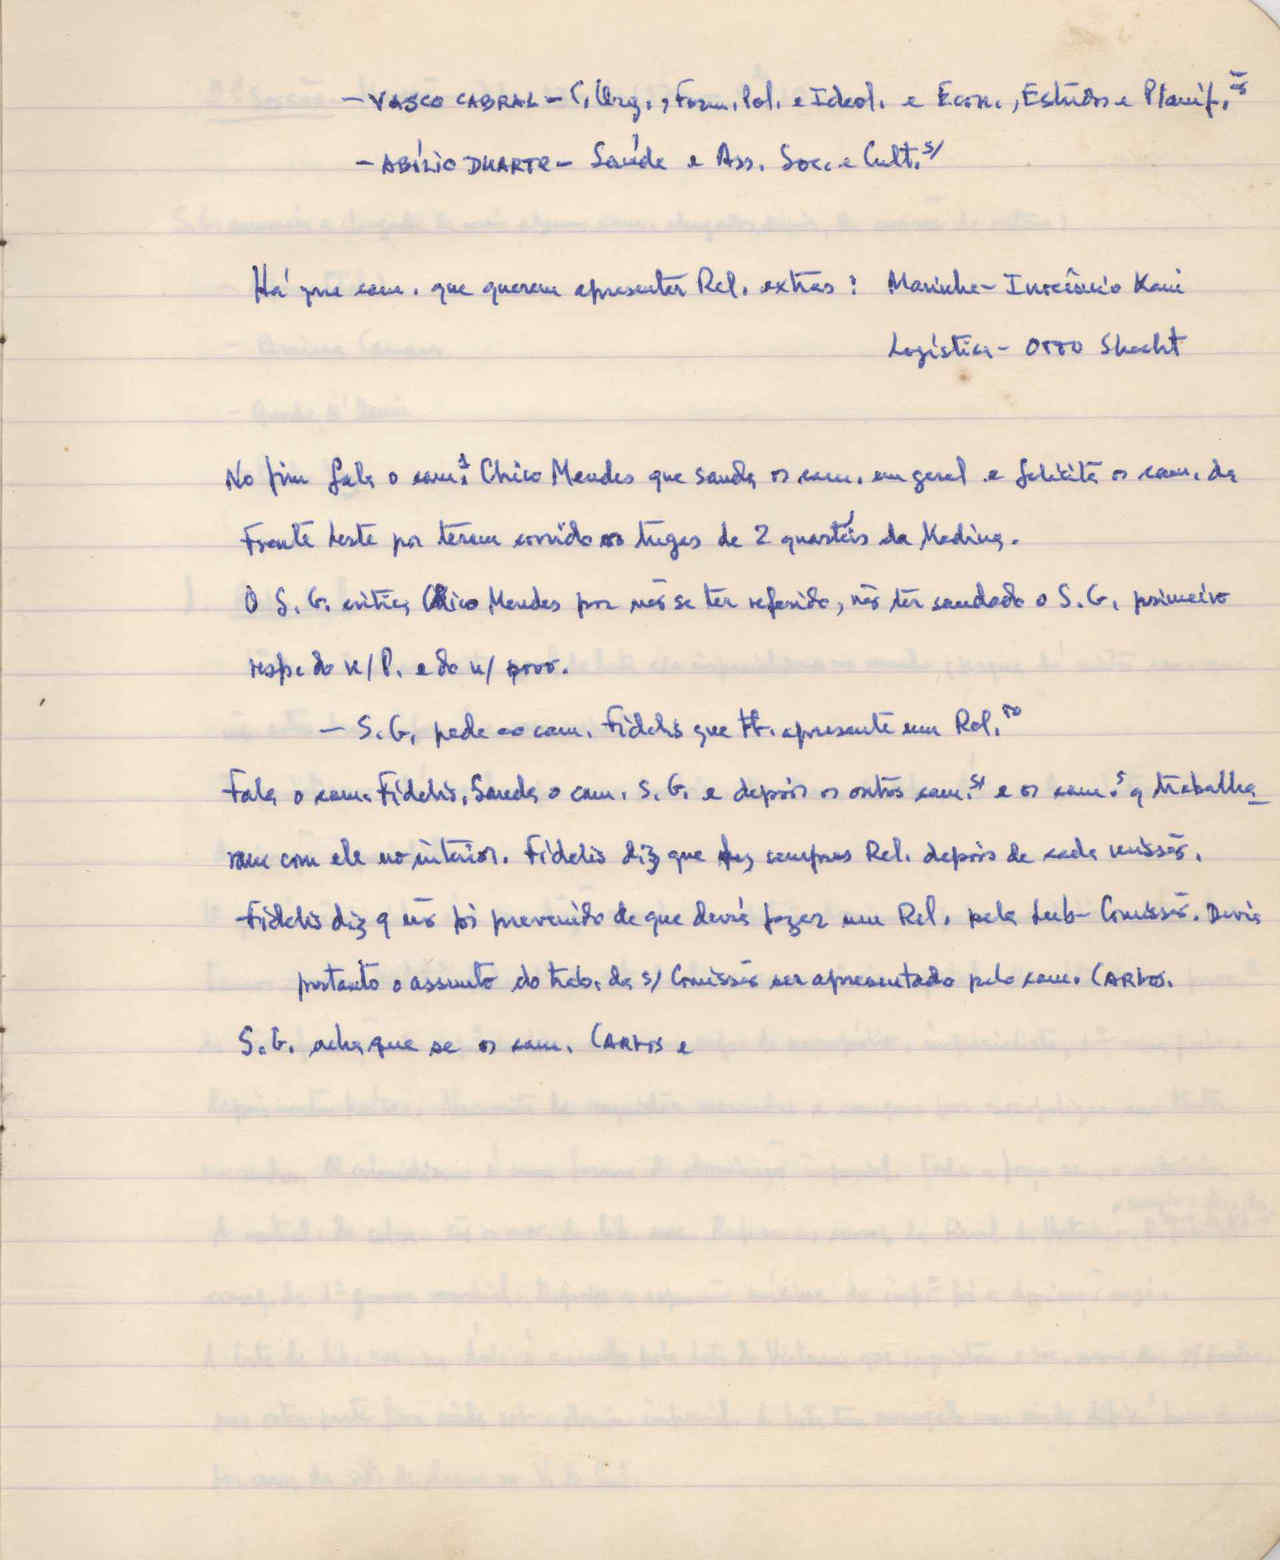 - VASCO CABRAL - C. Org., Form. Pol. e Ideol. e Econ., Estudos e Planif.ão
- ABÍLIO DUARTE - Saúde e Ass. Soc. e Cult.s/
Há que cam. que querem apresentar Rel. extras: Marinha - Inocêncio Kani
Logística - OTTO Shacht
No fim fala o cam. Chico Mendes que sauda os cam. em geral e felicita os cam. da
Frente Leste por terem corrido os tugas de 2 quartéis da Madina.
O S.G. critica Chico Mendes por não se ter referido, não ter saudado o S.G., primeiro
resp. do n/P. e do n/ povo.
- S.G. pede ao cam. Fidelis que apresente um Rel.ro
Fala o cam. Fidelis. Sauda o cam. S.G. e depois os outros cam.s/ e os cam.s q trabalha_
ram com ele no interior. Fidelis diz que fez sempre Rel. depois de cada missão.
Fidelis diz q não foi prevenido de que devia fazer um Rel. pela Sub-Comissão. Devia
portanto o assunto do trab. da s/ Comissão ser apresentado pelo cam. CARLOS.
S.G. acha que se os cam. CARLOS e